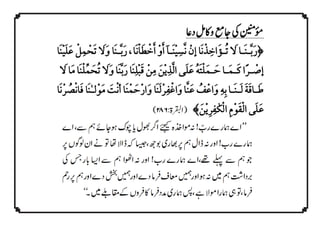 مؤمنین کی جامع و کامل دعا
﴿رَبَّـنَـا لَا تُـؤَاخِذْنَا إِنْ نَّسِيْنَآ أَوْ أَخْطَأْنَا، رَبَّـنَـا وَلَا تَحْمِلْ عَلَيْنَآ
إِصْـرًا كَـمَـا حَـمَـلْتَهُ عَلَى الَّذِيْنَ مِنْ قَبْلِنَا رَبَّنَا وَلَا تُحَمِّلْنَا مَا لَا
طَاقَةَ لَـنَـا بِهِ وَاعْفُ عَنَّا وَاغْفِرْلَنَا وَارْحَمْنَا أَنْتَ مَوْلٰـنَا فَانْصُرْنَا
عَلَى الْقَوْمِ الْكٰفِرِيْنَ﴾ (البقرة:۲۸۶)
’’اے ہمارے ربّ! نہ مواخذہ کیجئے اگر بھول یا چوک ہو جائے ہم سے، اے
ہمارے رب! اور نہ ڈال ہم پر بھاری بوجھ، جیسا کہ ڈالا تھا تو نے ان لوگوں پر
جو ہم سے پہلے تھے، اے ہمارے رب! اور نہ اٹھوا ہم سے ایسا بار جس کی
برداشت ہم میں نہ ہو اور ہمیں معاف فرما دے اور ہمیں بخش دے اور ہم پر رحم
فرما، تو ہی ہمارا مولا ہے، پس ہماری مدد فرما کافروں کے مقابلے میں‘‘۔